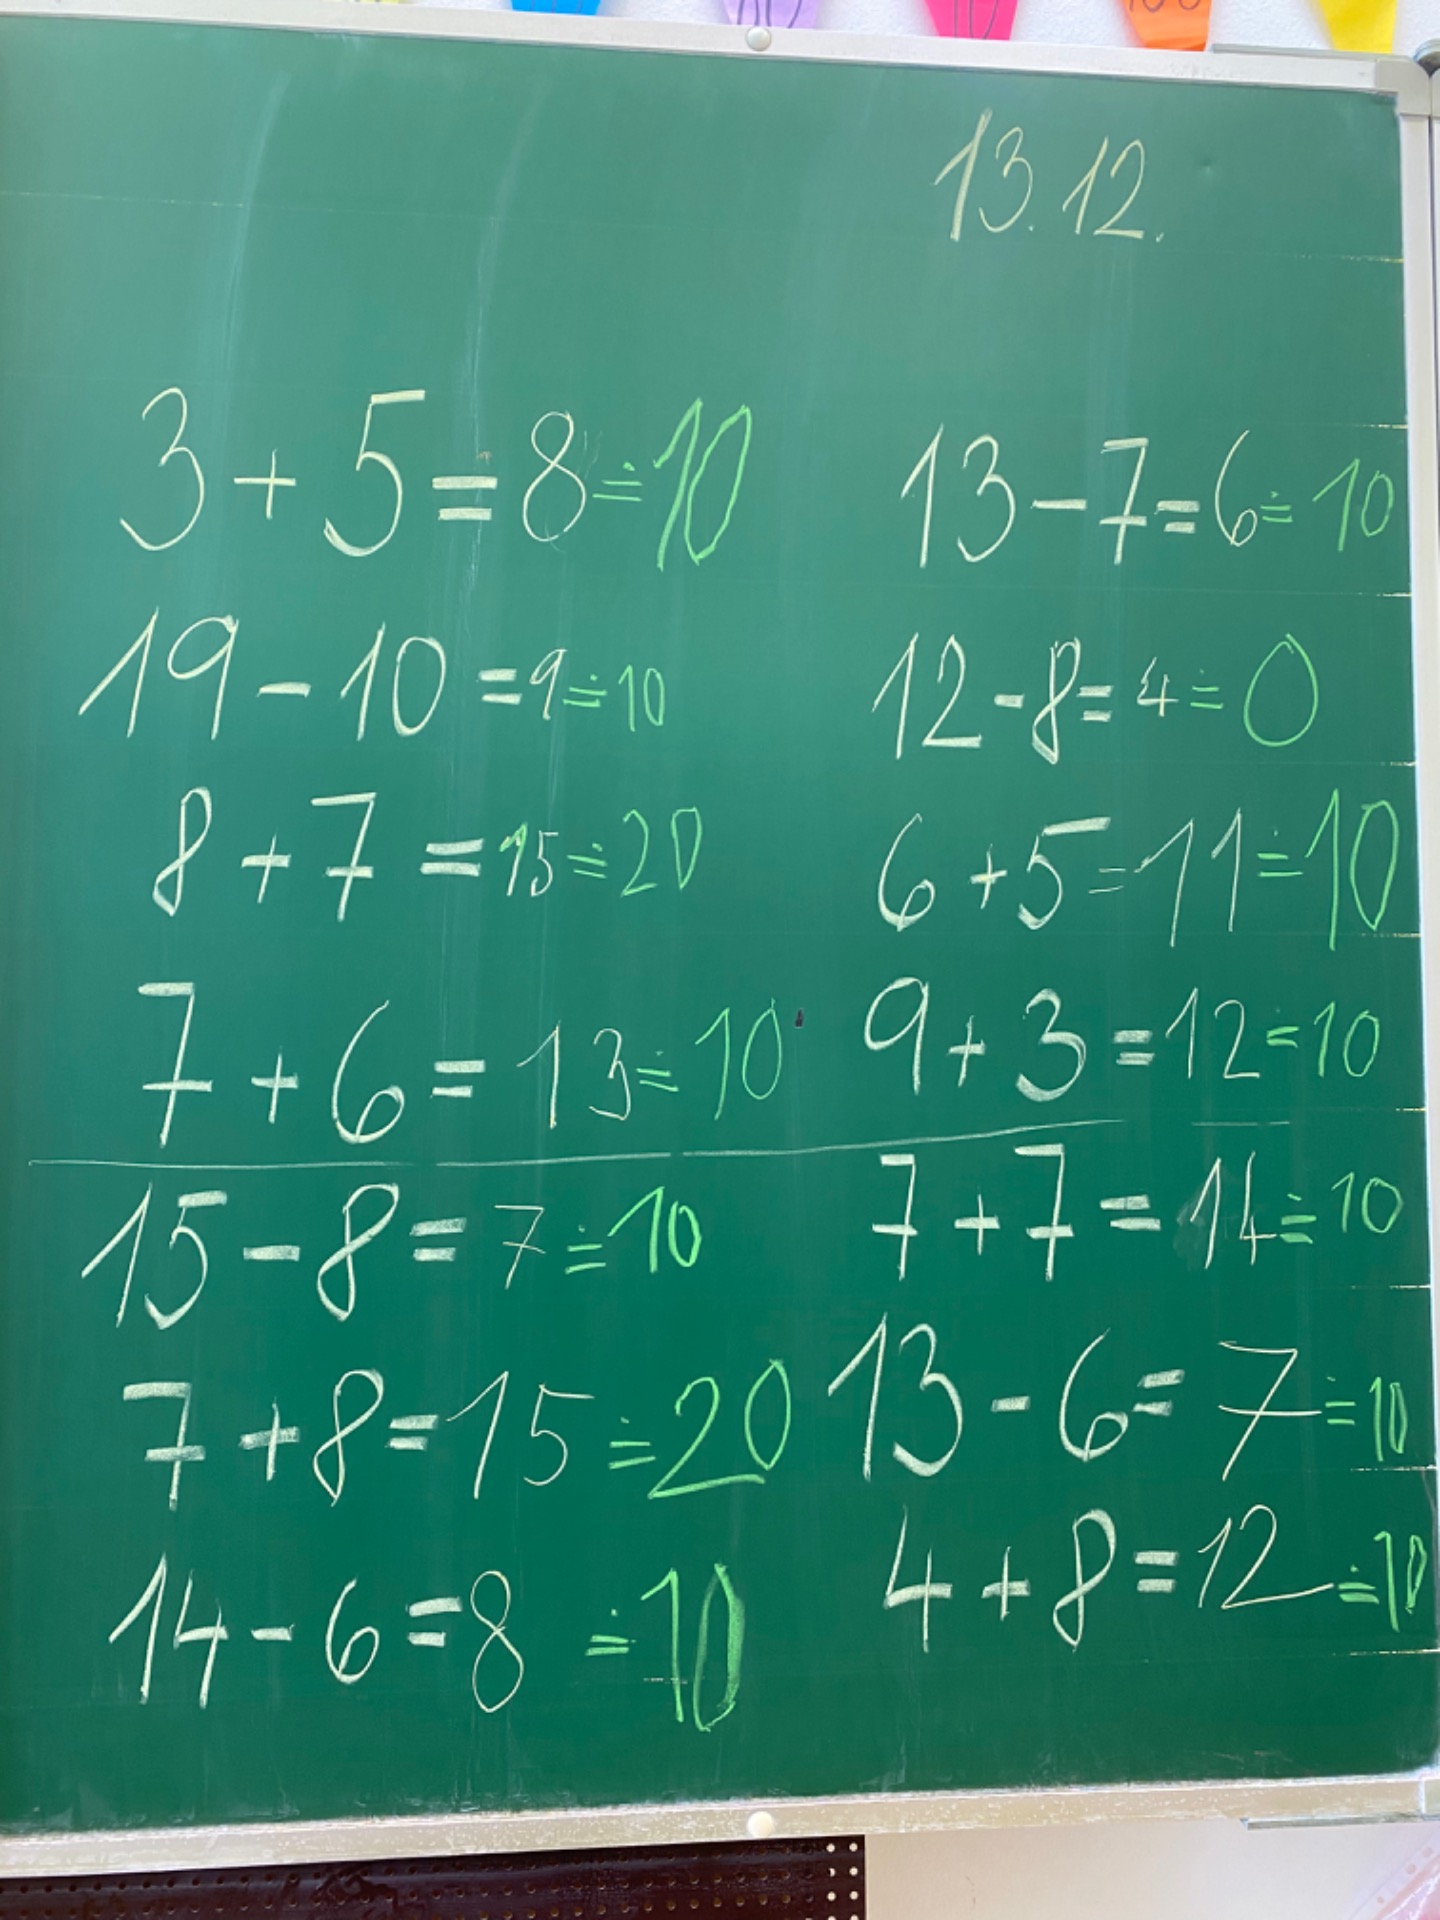 13.12.
3 + 5 = 8 ≐ 10
19 - 10 = 9 ≐ 10
8 + 7 = 15 ≐ 20
7 + 6 = 13 ≐ 10
15 - 8 = 7 ≐ 10
7 + 8 = 15 ≐ 20
14 - 6 = 8 ≐ 10
13 - 7 = 6 ≐ 10
12 - 8 = 4 ≐ 0
6 + 5 = 11 ≐ 10
9 + 3 = 12 ≐ 10
7 + 7 = 14 ≐ 10
13 - 6 = 7 ≐ 10
4 + 8 = 12 ≐ 10